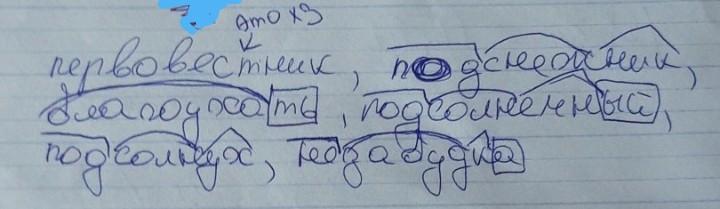 это хз
первовестник, подснежник,
благоухать, подсолнечный,
подсолнух, незабудка